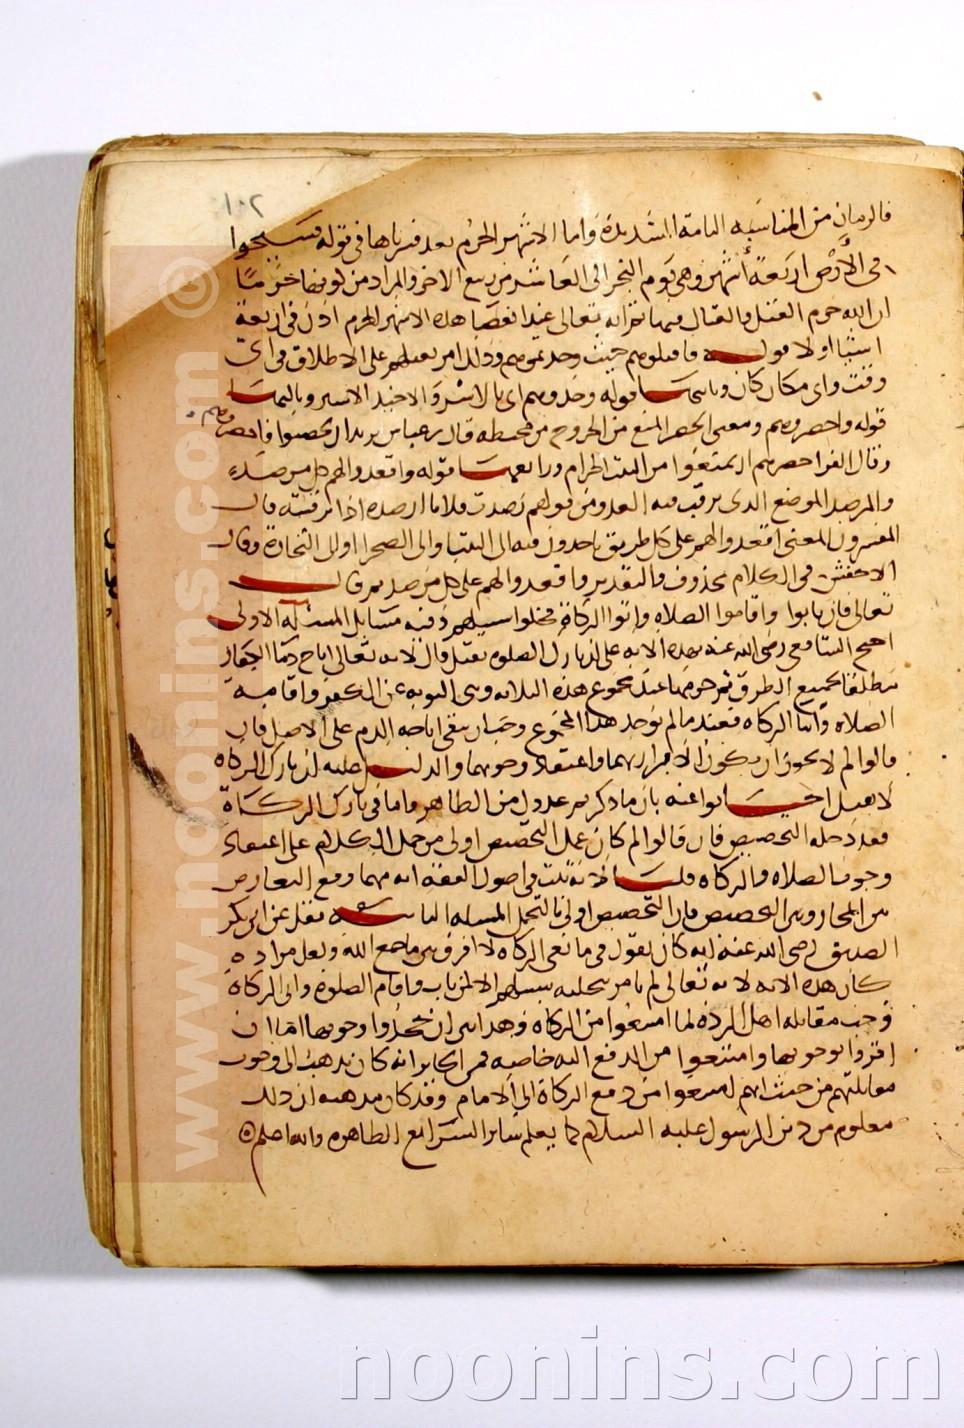 ١٠٢
فالرمان من المناسبه التامة الشديدة واما الاشهر الحرم بعد فسرناها فى قوله فسيحوا
فى الأرض اربعة أشهر وهى يوم النحر الى العاشر من ربيع الاخر والمراد من كونها حُرُمًا
ان الله حرم القتل والقتال فيها ثم انه تعالى عند انقضا هذه الاشهر الحرم اذن فى اربعة
اشيا اولا قوله فاقتلوهم حيث وجدتموهم وذلك امر بقتلهم على الاطلاق فى اى
وقت واى مكان كان وثانيها قوله وخذوهم اى بالاسر والاخيذ الاسير وثالثها
قوله واحصروهم ومعنى الحصر المنع من الخروج من محيطه قال بن عباس يريد ان تحصنوا فاحصروهم
وقال الفرا حصرهم ان يمنعوا من البيت الحرام ورابعها قوله واقعدوا لهم كل مرصد
والمرصد الموضع الذى يرقب فيه العدو من قولهم رصدت فلانا ارصده اذا ترقبته قال
المفسرون المعنى اقعدوا لهم على كل طريق ياخذون فيه الى البيت او الى الصحرا او الى التجارة وقال
الاخفش فى الكلام محذوف والتقدير واقعدوا لهم على كل مرصد ثم قال
تعالى فان تابوا واقاموا الصلاه واتوا الزكاة فخلوا سبيلهم وفيه مسائل المسئلة الاولى
احتج الشافعى رضى الله عنه بهذه الايه على ان تارك الصلوه يقتل قال لانه تعالى اباح دما الكفار
مطلقا بجميع الطرق ثم حرمها عند مجموع هذه الثلاثه وهى التوبه عن الكفر واقامة
الصلاه وايتا الزكاه فعند ما لم يوجد هذا المجموع وجب ان يبقى اباحة الدم على الاصل فان
قالوا لم لا يجوز ان يكون المراد الاقرار بهما واعتقاد وجوبهما والدليل عليه ان تارك الزكاه
لا يقتل اجابوا عنه بان ما ذكرتم عدول من الظاهر واما فى تارك الزكاة
فقد دخله التخصيص فان قالوا لم كان حمل التخصيص اولى من حمل الكلام على اعتقاد
وجوب الصلاه والزكاه قلنا لانه ثبت فى اصول الفقه انه مهما وقع التعارض
بين المجاز وبين التخصيص فان التخصيص اولى بالتحمل المسله الثانية نقل عن ابى بكر
الصديق رضى الله عنه انه كان يقول فى مانعى الزكاه لا افرق بين ما جمع الله ولعل مراده
كان هذه الايه لانه تعالى لم يامر بتخلية سبيلهم الا لمن تاب واقام الصلوة واتى الزكاة
فوجب مقاتلة اهل الردة لما امتنعوا من الزكاه وهذا بين ان جحدوا وجوبها اما ان
اقروا بوجوبها وامتنعوا من الدفع اليه خاصه فمن الجايز انه كان يذهب الى وجوب
مقاتلتهم من حيث انهم امتنعوا من دفع الزكاة الى الامام وقد كان مذهبه ان ذلك
معلوم من دين الرسول عليه السلام كما يعلم سائر الشرائع الظاهره والله اعلم
www.noonins.com ©
noonins.com